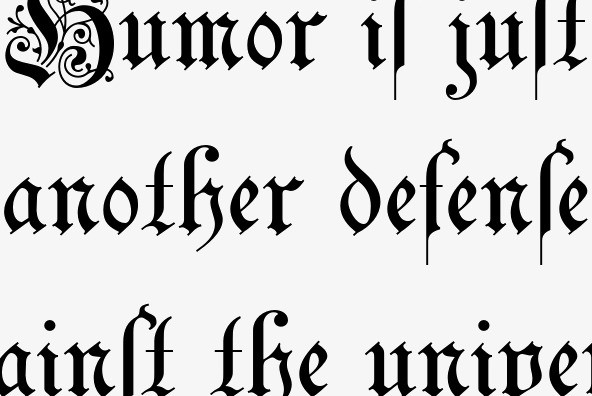 Humor iſ juſt
another defenſe
ainſt the univer